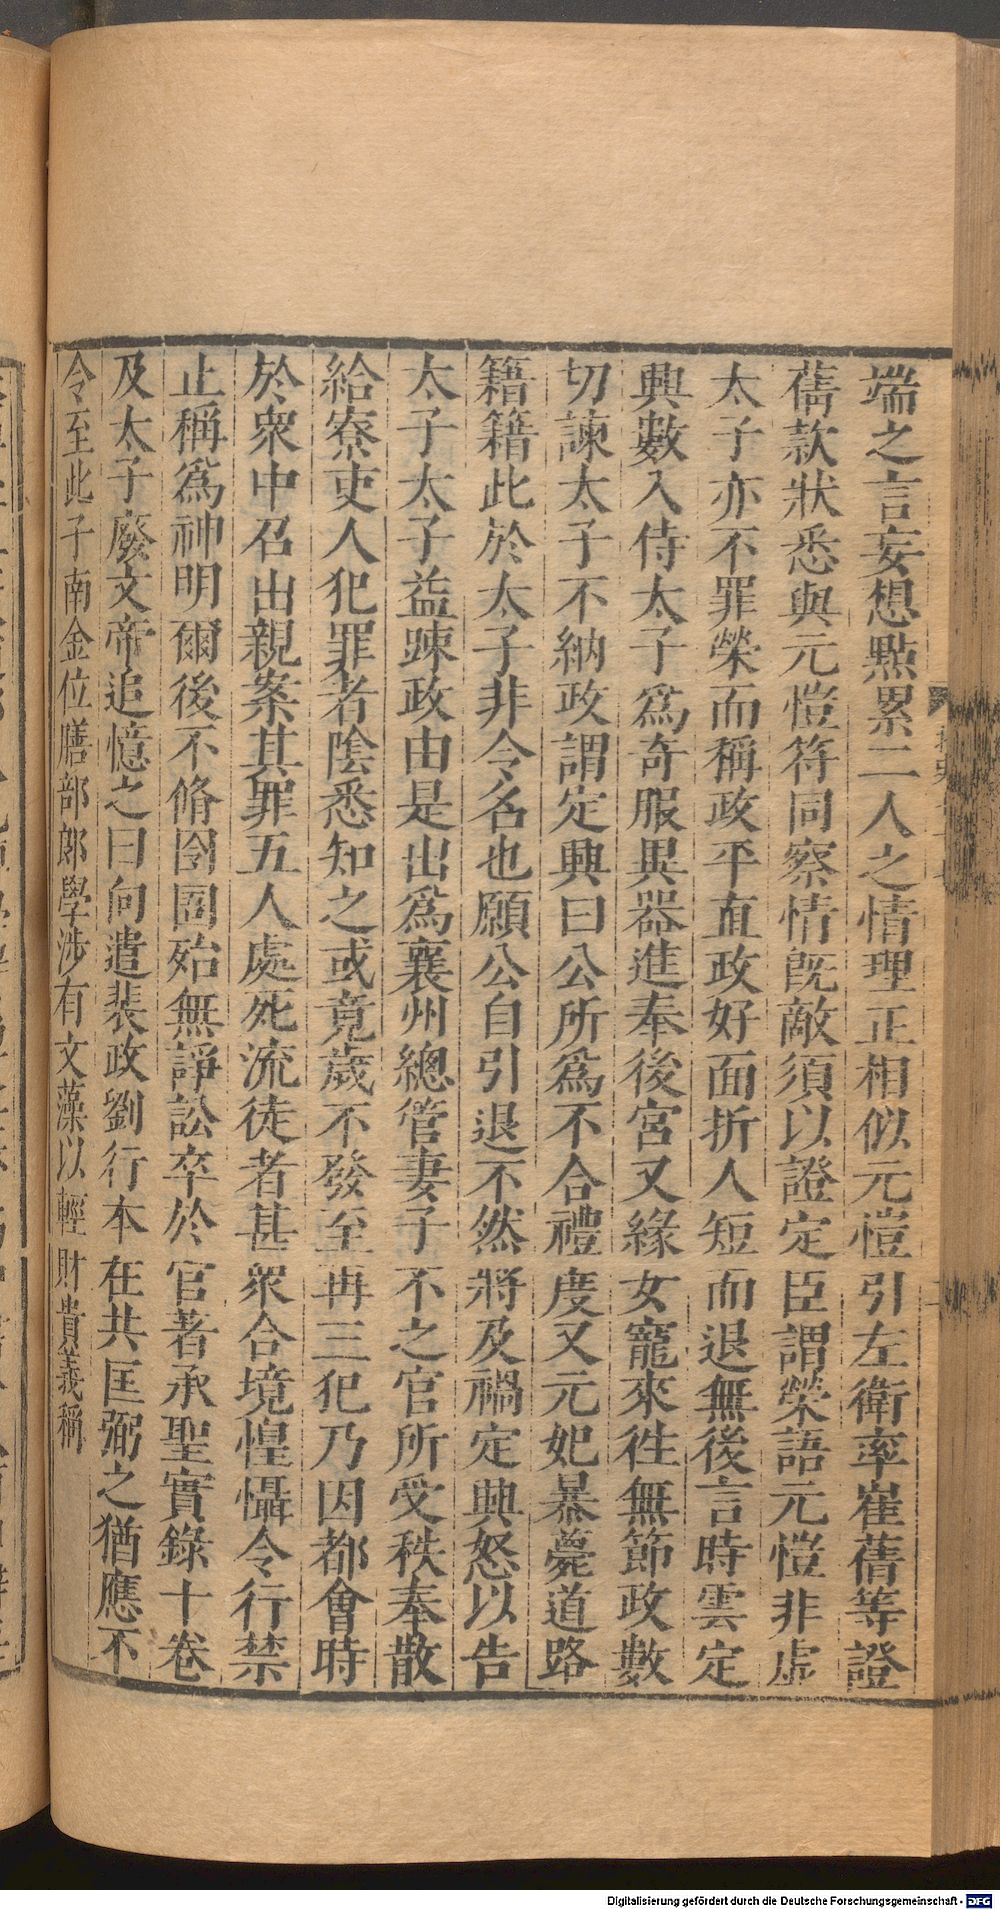 端之言妄想點累二人之情理正相似元愷引左衛率崔蒨等證
蒨款狀悉與元愷符同察情既敵須以證定臣謂榮語元愷非虛
太子亦不罪榮而稱政平直政好面折人短而退無後言時雲定
興數入侍太子爲奇服異器進奉後宮又緣女寵來往無節政數
切諫太子不納政謂定興曰公所爲不合禮度又元妃暴薨道路
籍籍此於太子非令名也願公自引退不然將及禍定興怒以告
太子太子益踈政由是出爲襄州總管妻子不之官所受秩奉散
給寮吏人犯罪者陰悉知之或竟歲不發至再三犯乃因都會時
於衆中召出親案其罪五人處死流徒者甚衆合境惶懾令行禁
止稱爲神明爾後不脩囹圄殆無諍訟卒於官著承聖實錄十卷
及太子廢文帝追憶之曰向遣裴政劉行本在共匡弼之猶應不
令至此子南金位膳部郎學涉有文藻以輕財貴義稱
Digitalisierung gefördert durch die Deutsche Forschungsgemeinschaft - DFG